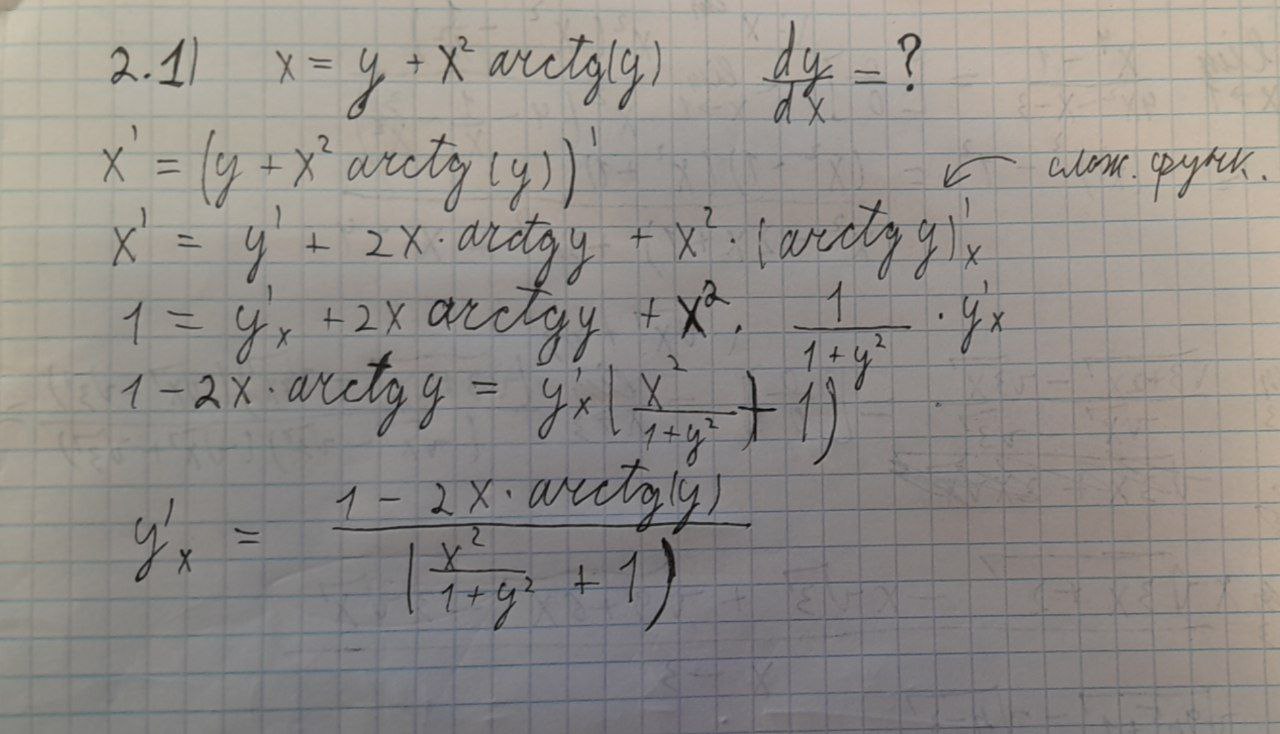 2.1) x = y + x² arctg(y) dy/dx = ?
x' = (y + x² arctg(y))'
слож. функ.
x' = y' + 2x · arctg y + x² · (arctg y)'ₓ
1 = y'ₓ + 2x arctg y + x² · 1/(1+y²) · y'ₓ
1 - 2x · arctg y = y'ₓ (x²/(1+y²) + 1)
y'ₓ = (1 - 2x · arctg(y))/(x²/(1+y²) + 1)